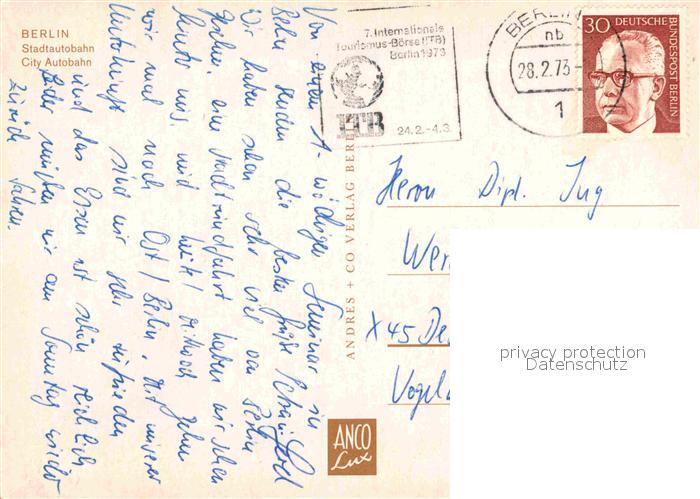 BERLIN
Stadtautobahn
City Autobahn
7. Internationale
Tourismus-Börse (ITB)
Berlin 1973
ITB
24.2.-4.3.
BERLIN
nb
28.2.73
1
30 DEUTSCHE BUNDESPOST BERLIN
Von einem 1-wöchigen Seminar in
Berlin senden die besten Grüße
Wir haben schon sehr viel von Berlin
gesehen, eine Stadtrundfahrt haben wir schon
hinter uns, und heute / Mittwoch gehen
wir mal nach Ost / Berlin. Mit unserer
Unterkunft sind wir sehr zufrieden
und das Essen ist schön reichlich
Leider müssen wir am Sonntag wieder
zurück fahren.
ANDRES + CO VERLAG BERLIN
Herrn Dipl. Ing
Wer
X 45 De
Vogel
privacy protection
Datenschutz
ANCO
Lux